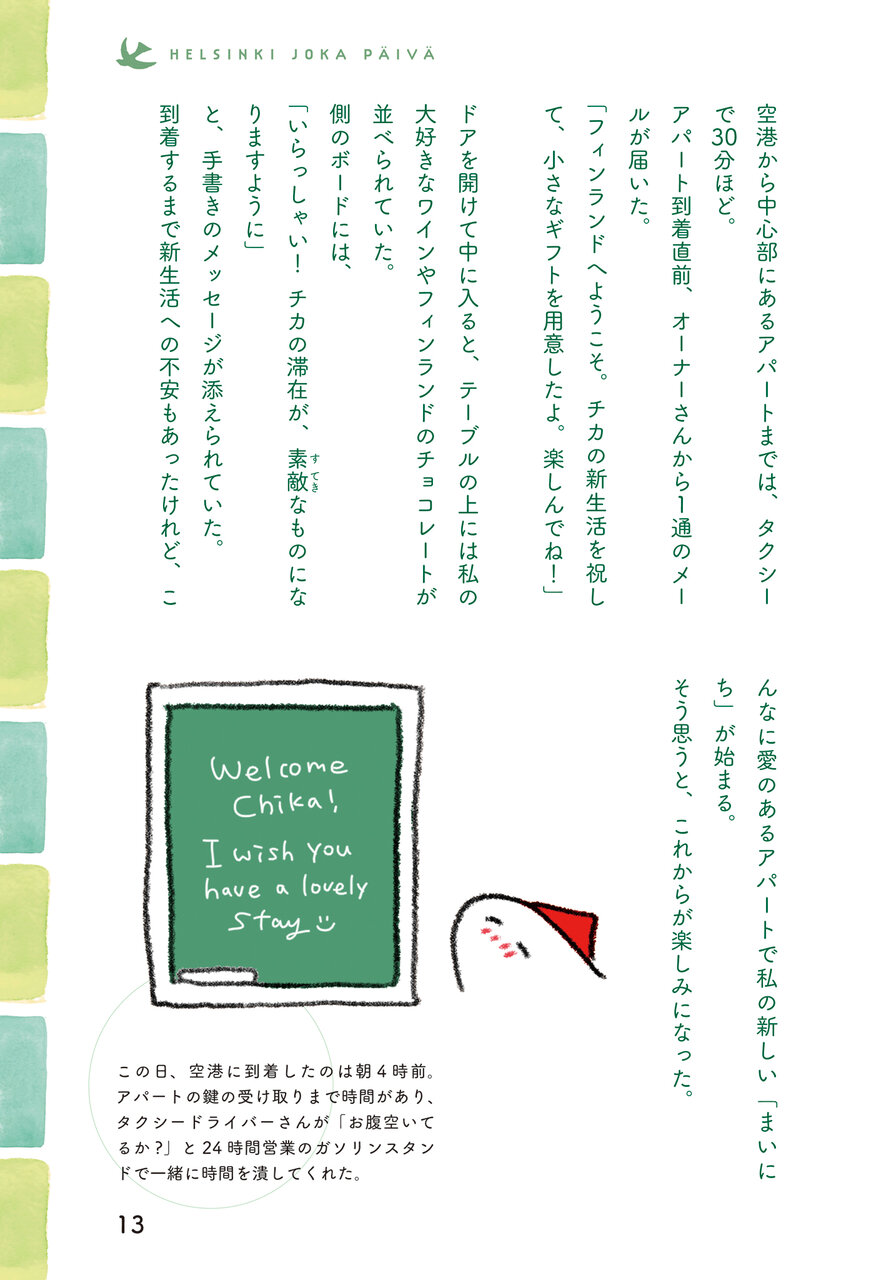 HELSINKI JOKA PÄIVÄ
空港から中心部にあるアパートまでは、タクシー
で30分ほど。
アパート到着直前、オーナーさんから1通のメー
ルが届いた。
「フィンランドへようこそ。チカの新生活を祝し
て、小さなギフトを用意したよ。楽しんでね！」
ドアを開けて中に入ると、テーブルの上には私の
大好きなワインやフィンランドのチョコレートが
並べられていた。
側のボードには、
「いらっしゃい！ チカの滞在が、素敵なものにな
すてき
りますように」
と、手書きのメッセージが添えられていた。
到着するまで新生活への不安もあったけれど、こ
んなに愛のあるアパートで私の新しい「まいに
ち」が始まる。
そう思うと、これからが楽しみになった。
Welcome
Chika!
I wish you
have a lovely
stay
この日、空港に到着したのは朝4時前。
アパートの鍵の受け取りまで時間があり、
タクシードライバーさんが「お腹空いて
るか？」と24時間営業のガソリンスタン
ドで一緒に時間を潰してくれた。
13